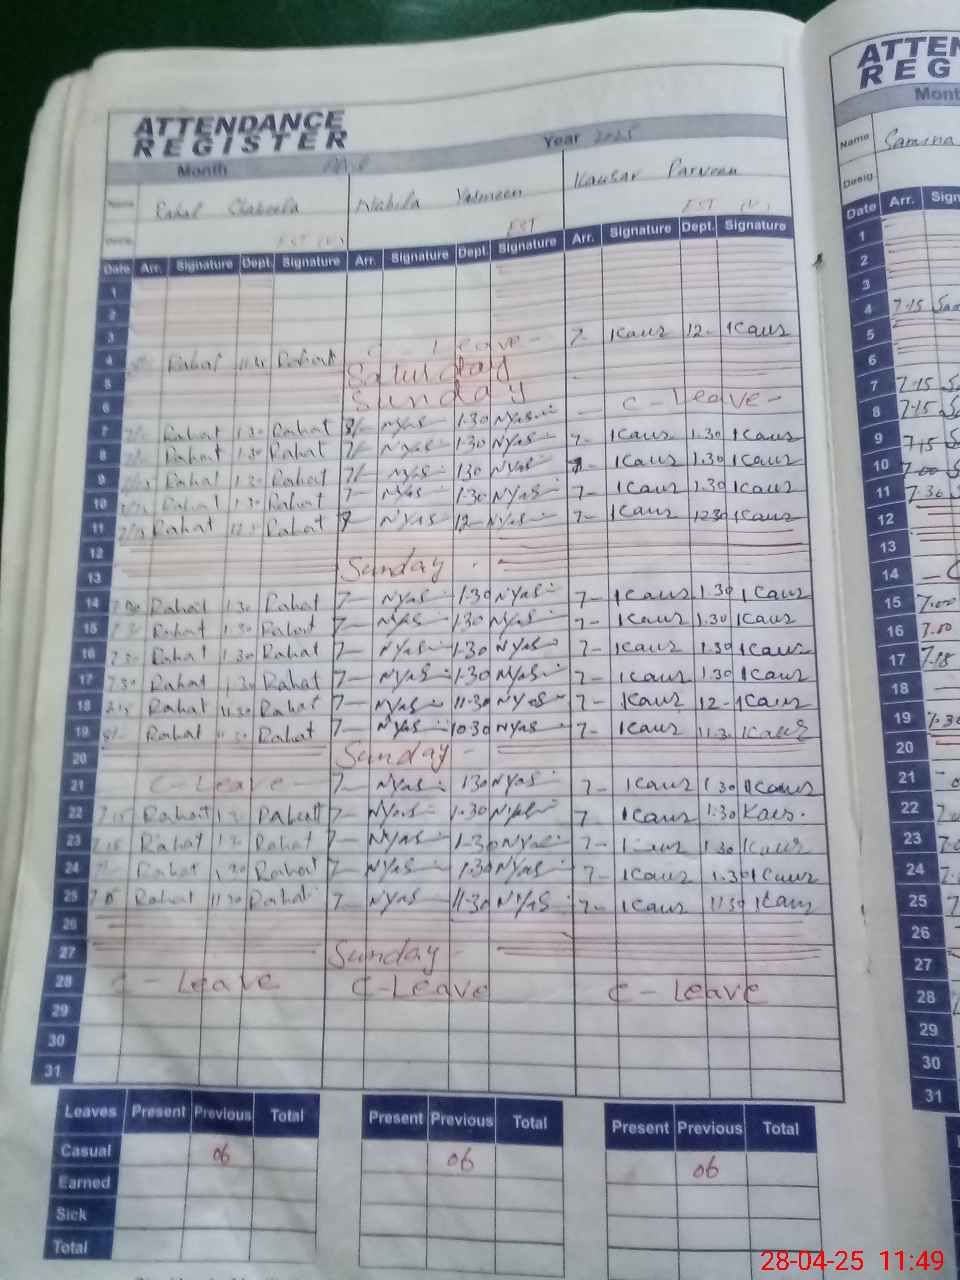 ATTENDANCE
REGISTER
Month Year 2025
Rahat Nabila Yasmeen Kausar Parveen
EST EST EST (V)
Date Arr. Signature Dept. Signature Arr. Signature Dept. Signature Arr. Signature Dept. Signature
1
2
3
4 Rahat Rahat C - Leave - 7- Kaus 12- Kaus
5 Saturday
6 Sunday C - Leave -
7 Rahat 1.30 Rahat 8/- NYAS 1.30 NYAS
8 Rahat 1.30 Rahat 7/- NYAS 1.30 NYAS 7- Kaus 1.30 Kaus
9 Rahat 1.30 Rahat 7/- NYAS 130 NYAS 7- Kaus 1.30 Kaus
10 Rahat 1.30 Rahat 7- NYAS 1.30 NYAS 7- Kaus 1.30 Kaus
11 Rahat Rahat 7 NYAS 12- NYAS 7- Kaus 1230 Kaus
12
13 Sunday
14 Rahat 1.30 Rahat 7- NYAS 1.30 NYAS 7- Kaus 1.30 Kaus
15 Rahat 1.30 Rahat 7- NYAS 1.30 NYAS 7- Kaus 1.30 Kaus
16 Rahat 1.30 Rahat 7- NYAS 1.30 NYAS 7- Kaus 1.30 Kaus
17 730 Rahat 1.30 Rahat 7- NYAS 1.30 NYAS 7- Kaus 1.30 Kaus
18 Rahat 11.30 Rahat 7- NYAS 11.30 NYAS 7- Kaus 12- Kaus
19 Rahat 11.30 Rahat 7- NYAS 10.30 NYAS 7- Kaus 11.30 Kaus
20 Sunday -
21 C - Leave - 7- NYAS 130 NYAS 7- Kaus 1.30 Kaus
22 7.15 Rahat Rahat 7- NYAS 1.30 NYAS 7 Kaus 1.30 Kaus.
23 7.15 Rahat Rahat 7- NYAS 1.30 NYAS 7- Kaus 1.30 Kaus
24 Rahat 1.30 Rahat 7- NYAS 1.30 NYAS 7- Kaus 1.30 Kaus
25 Rahat 11.30 Rahat 7- NYAS 11.30 NYAS 7- Kaus 1130 Kaus
26
27 Sunday -
28 C - Leave C - Leave C - Leave
29
30
31
Leaves Present Previous Total Present Previous Total Present Previous Total
Casual 06 06 06
Earned
Sick
Total
Name Samina
Desig
Date Arr.
1
2
3
4 7.15
5
6
7 7.15
8 7.15
9 7.15
10 7.00
11 7.30
12
13
14
15 7.00
16 7.00
17 7.15
18
19 7.30
20
21
22
23
24
25
26
27
28
29
30
31
28-04-25 11:49